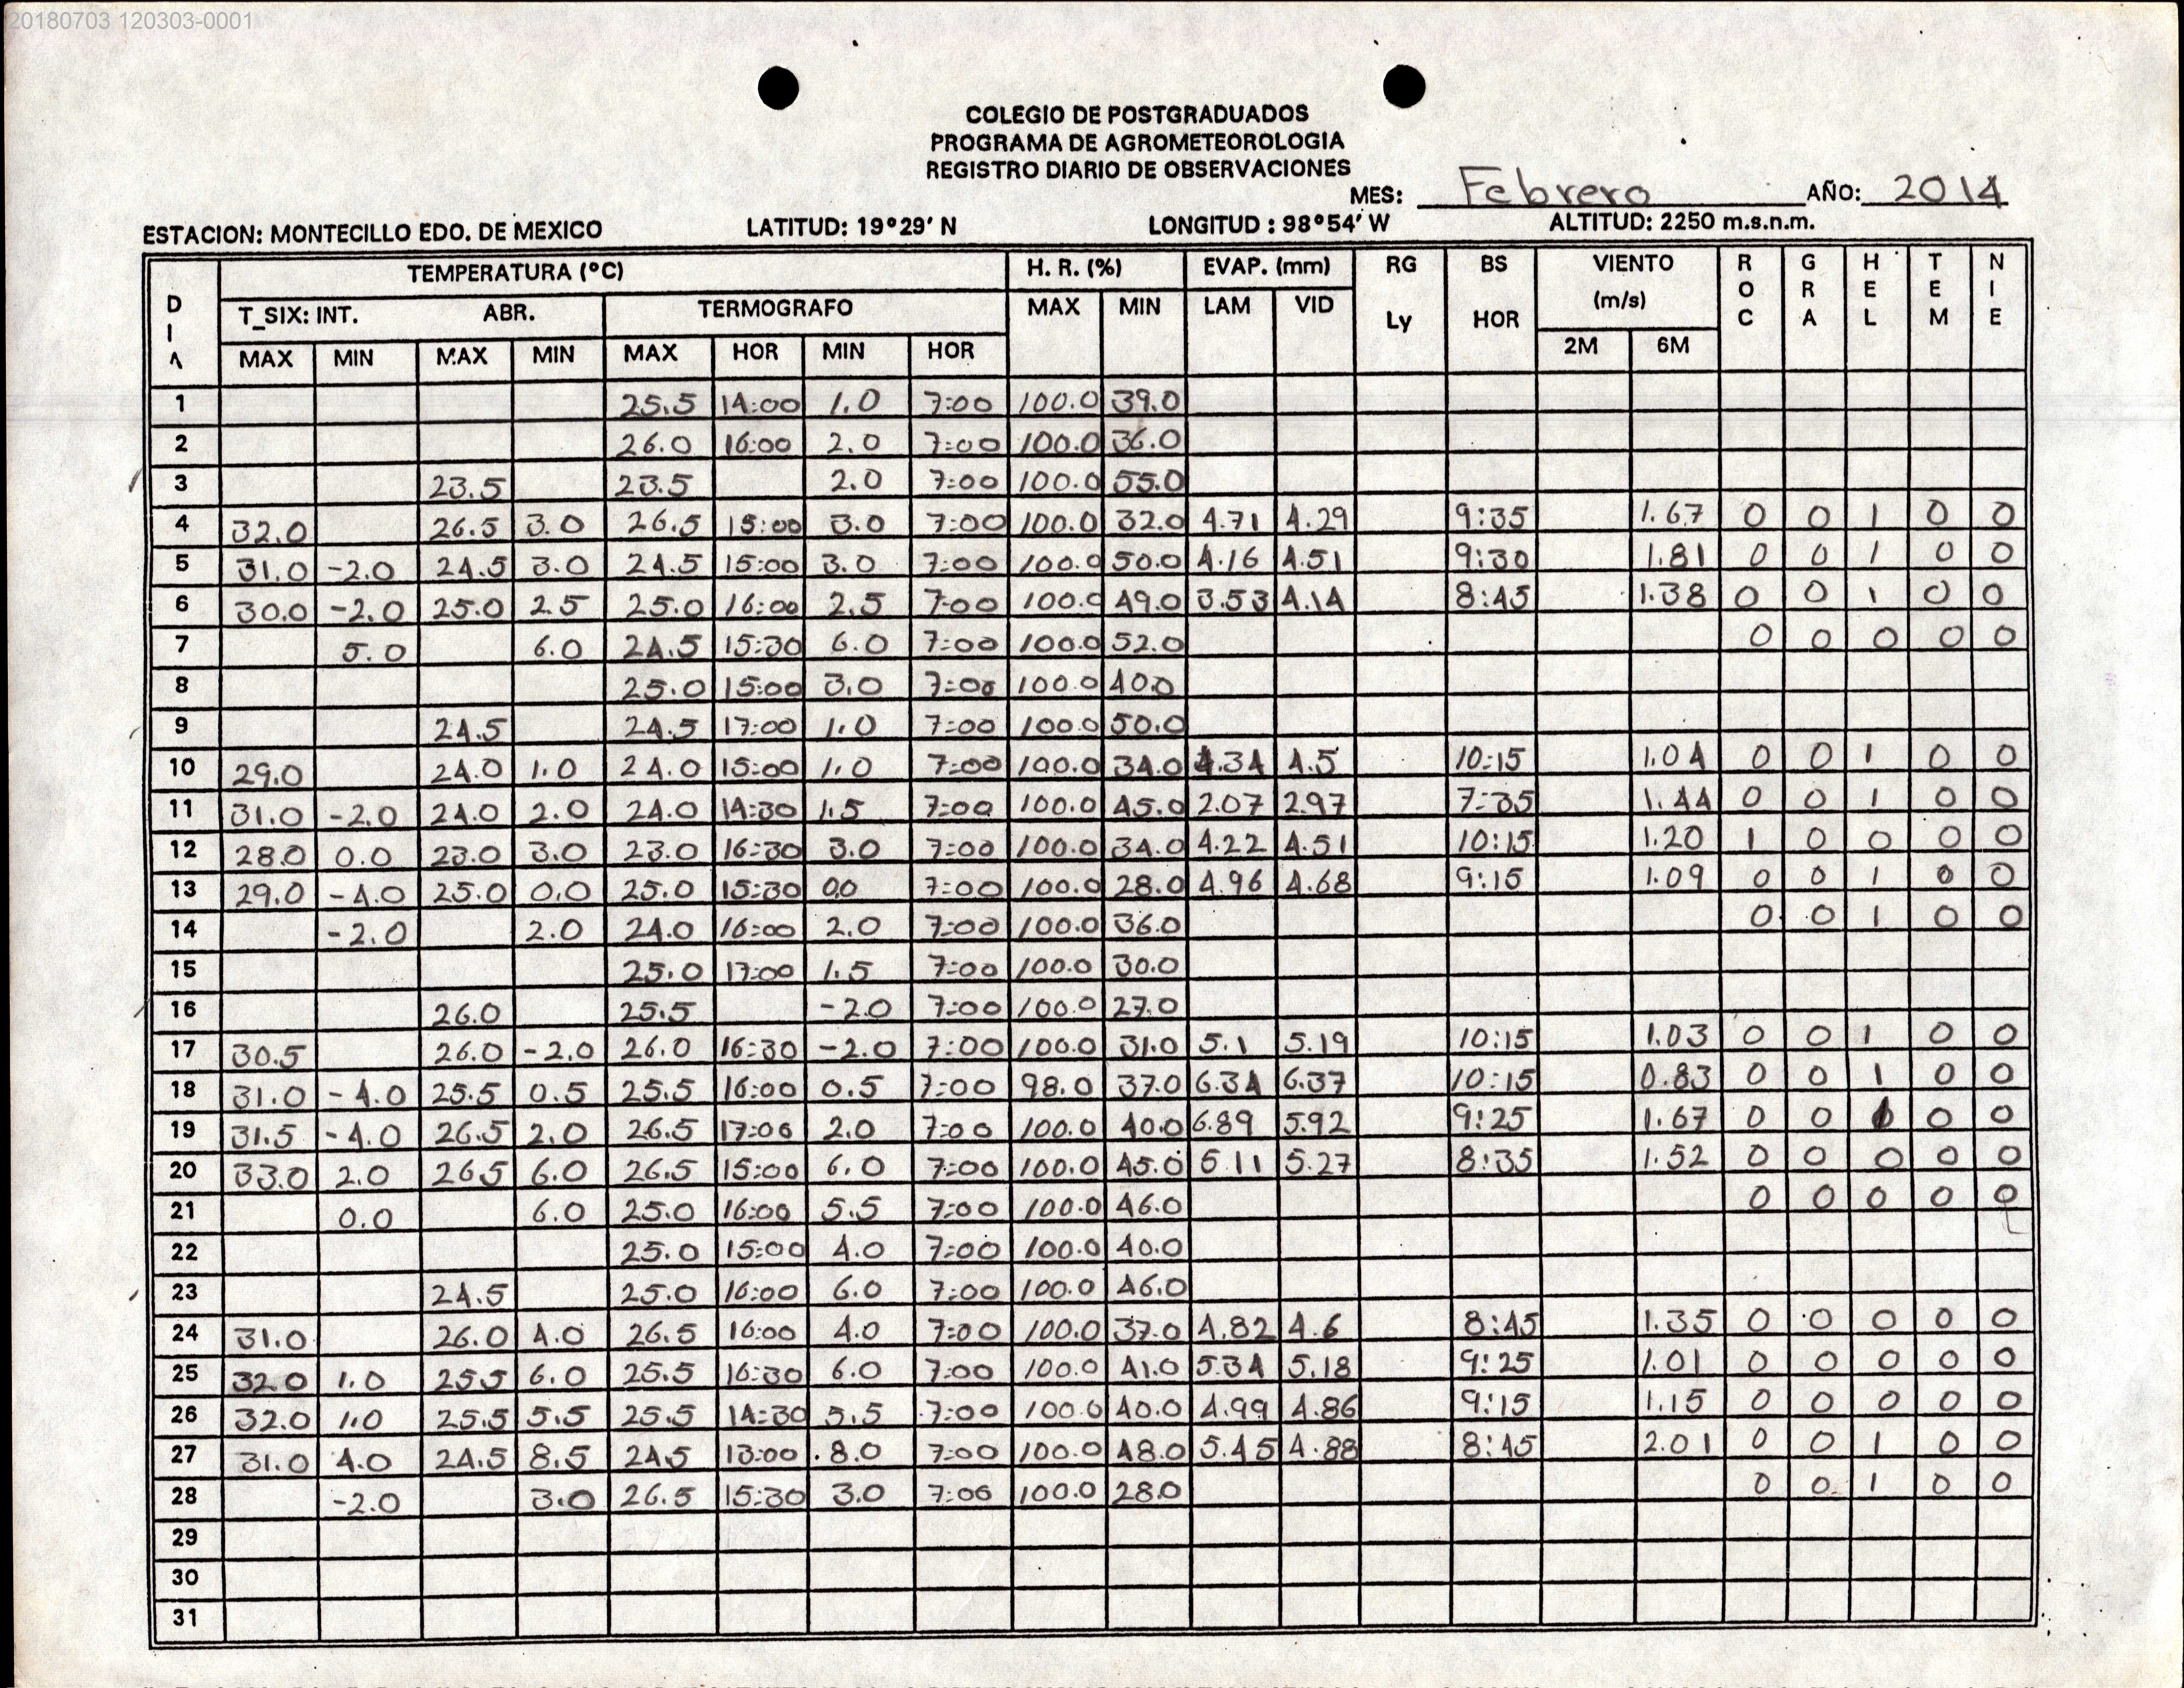 20180703 120303-0001
COLEGIO DE POSTGRADUADOS
PROGRAMA DE AGROMETEOROLOGIA
REGISTRO DIARIO DE OBSERVACIONES
MES: Febrero AÑO: 2014
ESTACION: MONTECILLO EDO. DE MEXICO LATITUD: 19°29' N LONGITUD : 98°54' W ALTITUD: 2250 m.s.n.m.
DIA TEMPERATURA (°C) H. R. (%) EVAP. (mm) RG BS VIENTO ROC GRA HEL TEM NIE
T_SIX: INT. ABR. TERMOGRAFO MAX MIN LAM VID Ly HOR (m/s)
MAX MIN MAX MIN MAX HOR MIN HOR 2M 6M
1 25.5 14:00 1.0 7:00 100.0 39.0
2 26.0 16:00 2.0 7:00 100.0 36.0
3 23.5 23.5 2.0 7:00 100.0 55.0
4 32.0 26.5 3.0 26.5 15:00 3.0 7:00 100.0 32.0 4.71 4.29 9:35 1.67 0 0 1 0 0
5 31.0 -2.0 24.5 3.0 24.5 15:00 3.0 7:00 100.0 50.0 4.16 4.51 9:30 1.81 0 0 1 0 0
6 30.0 -2.0 25.0 2.5 25.0 16:00 2.5 7:00 100.0 49.0 3.53 4.14 8:45 1.38 0 0 1 0 0
7 5.0 6.0 24.5 15:30 6.0 7:00 100.0 52.0 0 0 0 0 0
8 25.0 15:00 3.0 7:00 100.0 40.0
9 24.5 24.5 17:00 1.0 7:00 100.0 50.0
10 29.0 24.0 1.0 24.0 15:00 1.0 7:00 100.0 34.0 4.34 4.5 10:15 1.04 0 0 1 0 0
11 31.0 -2.0 24.0 2.0 24.0 14:30 1.5 7:00 100.0 45.0 2.07 2.97 7:35 1.44 0 0 1 0 0
12 28.0 0.0 23.0 3.0 23.0 16:30 3.0 7:00 100.0 34.0 4.22 4.51 10:15 1.20 1 0 0 0 0
13 29.0 -4.0 25.0 0.0 25.0 15:30 0.0 7:00 100.0 28.0 4.96 4.68 9:15 1.09 0 0 1 0 0
14 -2.0 2.0 24.0 16:00 2.0 7:00 100.0 36.0 0 0 1 0 0
15 25.0 17:00 1.5 7:00 100.0 30.0
16 26.0 25.5 -2.0 7:00 100.0 27.0
17 30.5 26.0 -2.0 26.0 16:30 -2.0 7:00 100.0 31.0 5.1 5.19 10:15 1.03 0 0 1 0 0
18 31.0 -4.0 25.5 0.5 25.5 16:00 0.5 7:00 98.0 37.0 6.34 6.37 10:15 0.83 0 0 1 0 0
19 31.5 -4.0 26.5 2.0 26.5 17:00 2.0 7:00 100.0 40.0 6.89 5.92 9:25 1.67 0 0 0 0
20 33.0 2.0 26.5 6.0 26.5 15:00 6.0 7:00 100.0 45.0 5.27 8:35 1.52 0 0 0 0 0
21 0.0 6.0 25.0 16:00 5.5 7:00 100.0 46.0 0 0 0 0 0
22 25.0 15:00 4.0 7:00 100.0 40.0
23 24.5 25.0 16:00 6.0 7:00 100.0 46.0
24 31.0 26.0 4.0 26.5 16:00 4.0 7:00 100.0 37.0 4.82 4.6 8:45 1.35 0 0 0 0 0
25 32.0 1.0 25.5 6.0 25.5 16:30 6.0 7:00 100.0 41.0 5.34 5.18 9:25 1.01 0 0 0 0 0
26 32.0 1.0 25.5 5.5 25.5 14:30 5.5 7:00 100.0 40.0 4.99 4.86 9:15 1.15 0 0 0 0 0
27 31.0 4.0 24.5 8.5 24.5 13:00 8.0 7:00 100.0 48.0 5.45 4.88 8:45 2.01 0 0 1 0 0
28 -2.0 3.0 26.5 15:30 3.0 7:00 100.0 28.0 0 0 1 0 0
29
30
31